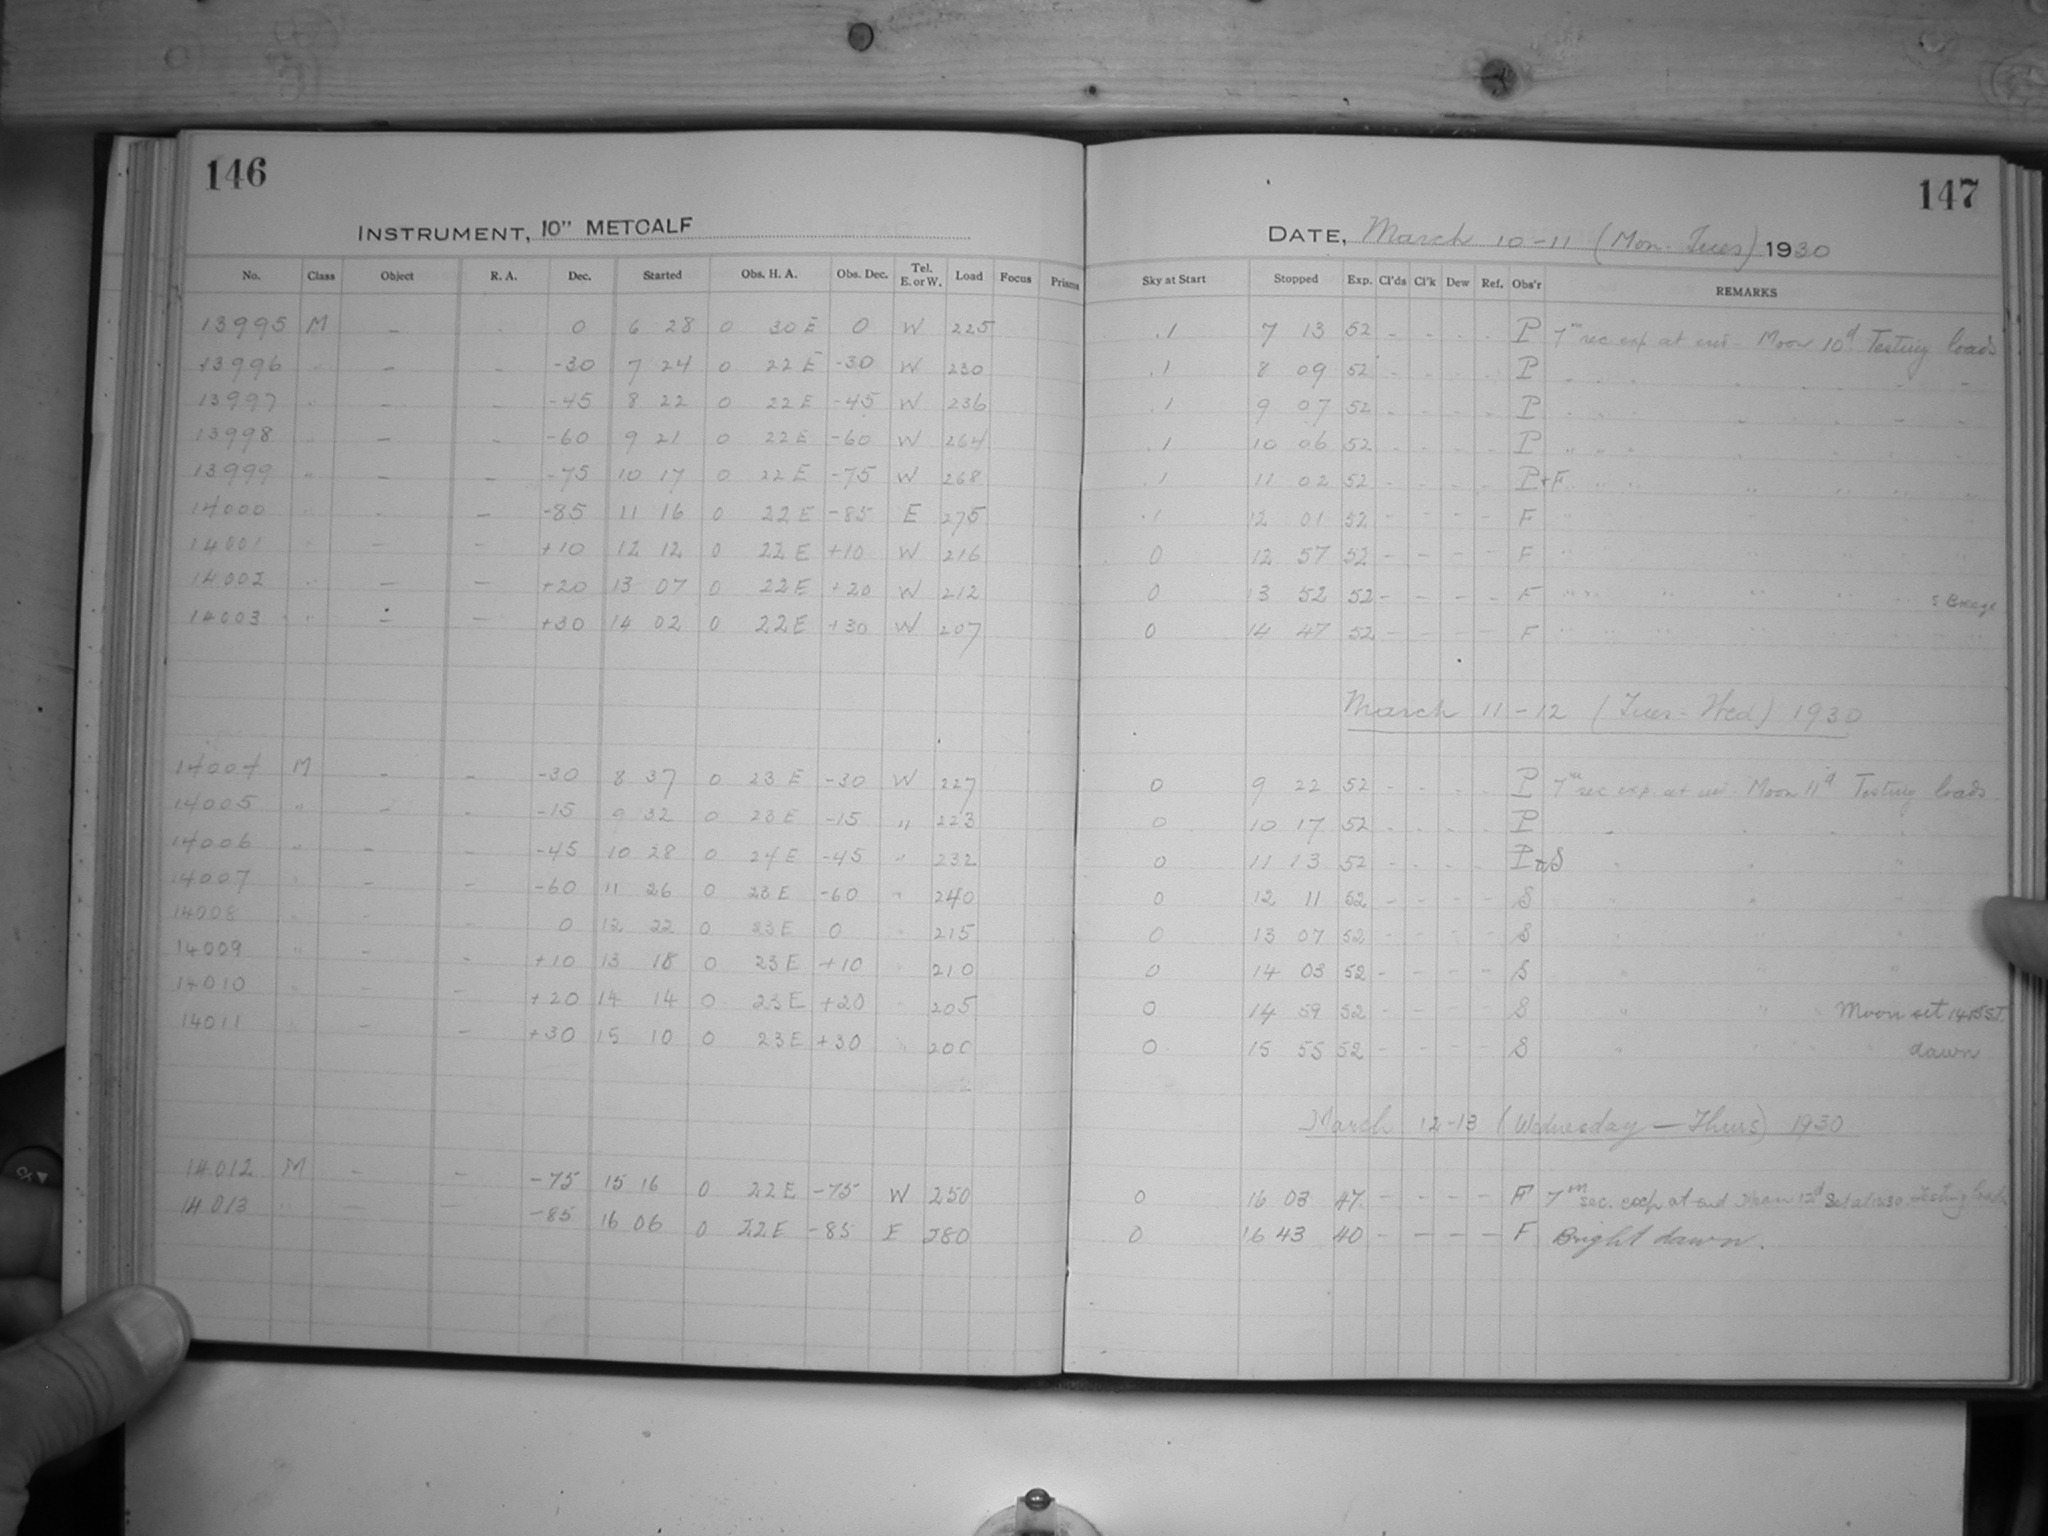 146
147
INSTRUMENT, 10" METCALF
DATE, March 10-11 (Mon. Tues) 1930
No. Class Object R. A. Dec. Started Obs. H. A. Obs. Dec. Tel. E. or W. Load Focus Prisms Sky at Start Stopped Exp. Cl'ds Cl'k Dew Ref. Obs'r REMARKS
13995 M - 0 6 28 0 30 E 0 W 225 .1 7 13 52 - - - - P 7m sec exp at end Moon 10d Testing loads
13996 " - -30 7 24 0 22 E -30 W 230 .1 8 09 52 - - - - P
13997 " - - -45 8 22 0 22 E -45 W 236 .1 9 07 52 - - - - P
13998 " - - -60 9 21 0 22 E -60 W 264 .1 10 06 52 - - - - P
13999 " - - -75 10 17 0 22 E -75 W 268 .1 11 02 52 - - - - P+F
14000 " - - -85 11 16 0 22 E -85 E 275 .1 12 01 52 - - - - F
14001 " - - +10 12 12 0 22 E +10 W 216 0 12 57 52 - - - - F
14002 " - - +20 13 07 0 22 E +20 W 212 0 13 52 52 - - - - F S Breeze
14003 " - - +30 14 02 0 22 E +30 W 207 0 14 47 52 - - - - F
March 11-12 (Tues-Wed) 1930
14004 M - - -30 8 37 0 23 E -30 W 227 0 9 22 52 - - - - P 7m sec exp. at end Moon 11d Testing loads
14005 " - - -15 9 32 0 23 E -15 " 223 0 10 17 52 - - - - P
14006 " - - -45 10 28 0 24 E -45 " 232 0 11 13 52 - - - - P S
14007 " - - -60 11 26 0 23 E -60 " 240 0 12 11 52 - - - - S
14008 " - - 0 12 22 0 23 E 0 " 215 0 13 07 52 - - - - S
14009 " - - +10 13 18 0 23 E +10 " 210 0 14 03 52 - - - - S
14010 - - +20 14 14 0 23 E +20 " 205 0 14 59 52 - - - - S Moon set
14011 - - +30 15 10 0 23 E +30 " 200 0 15 55 52 - - - - S dawn
March 12-13 (Wednesday - Thurs) 1930
14012 M - - -75 15 16 0 22 E -75 W 250 0 16 03 47 - - - - F 7m sec. exp at end Moon 12d Testing loads
14013 " - - -85 16 06 0 22 E -85 E 280 0 16 43 40 - - - - F Bright dawn.